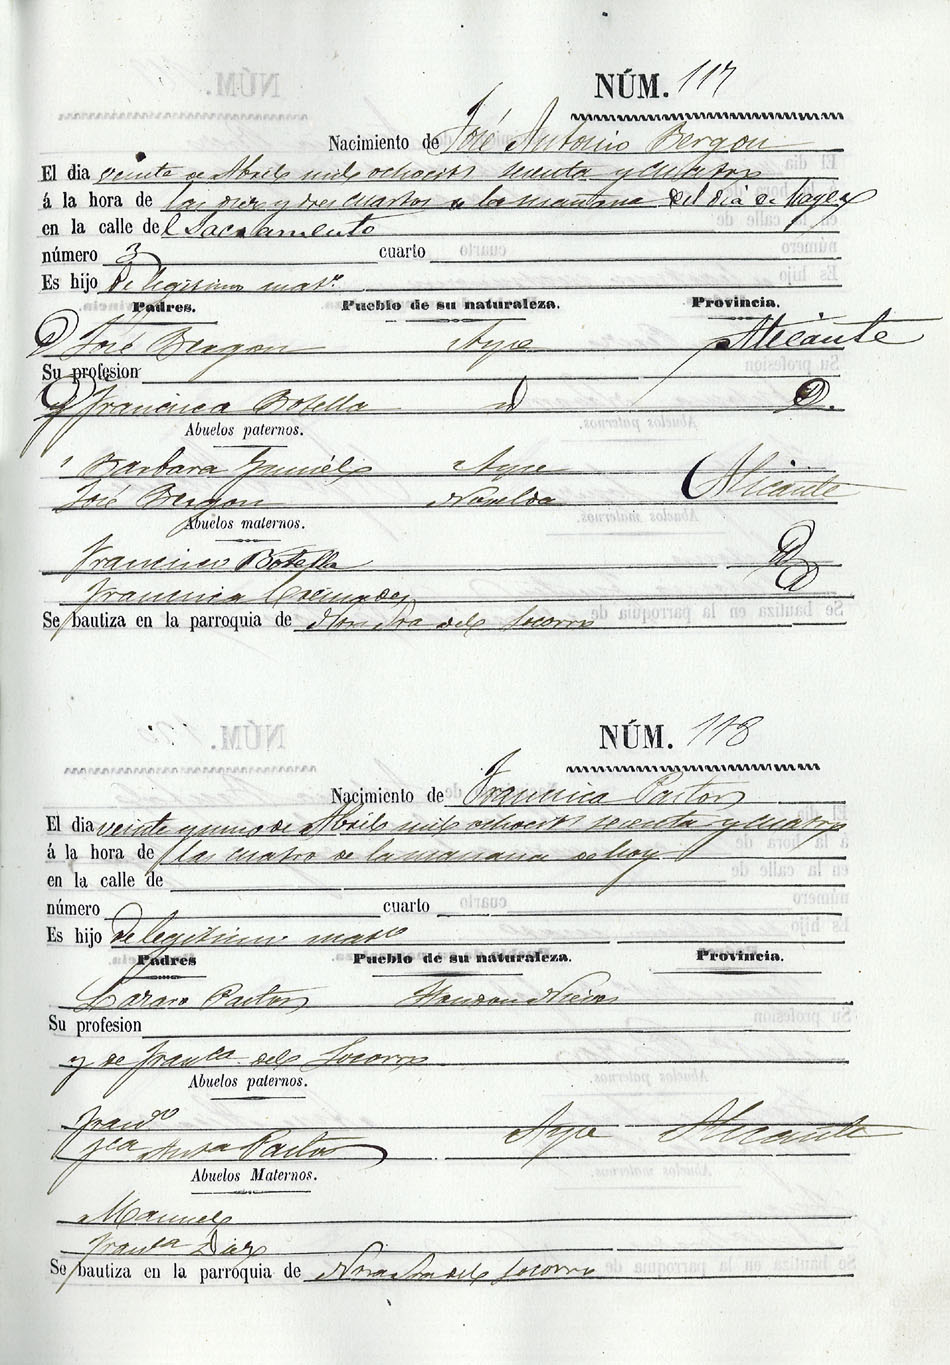 NÚM. 117
Nacimiento de José Antonio Bergon
El dia veinte de Abril mil ochocts setenta y cuatro
á la hora de las diez y tres cuartos de la mañana del dia de hayer
en la calle del Sacramento
número 3 cuarto
Es hijo de legitimo mato
Padres. Pueblo de su naturaleza. Provincia.
D José Bergon Aspe Alicante
Su profesion
y Francisca Botella id D.
Abuelos paternos.
Barbara Aspe Alicante
José Bergon Novelda
Abuelos maternos.
Francisco Botella
Francisca
Se bautiza en la parroquia de Ntra Sra del Socorro
NÚM. 118
Nacimiento de Francisca Pastor
El dia veinte y uno de Abril mil ochocts setenta y cuatro
á la hora de las cuatro de la mañana de hoy
en la calle de
número cuarto
Es hijo de legitimo mato
Padres Pueblo de su naturaleza. Provincia.
Lazaro Pastor
Su profesion
y de Franca del Socorro
Abuelos paternos.
Franco
Pastor Aspe Alicante
Abuelos Maternos.
Manuel
Franca Diez
Se bautiza en la parroquia de Ntra Sra del Socorro